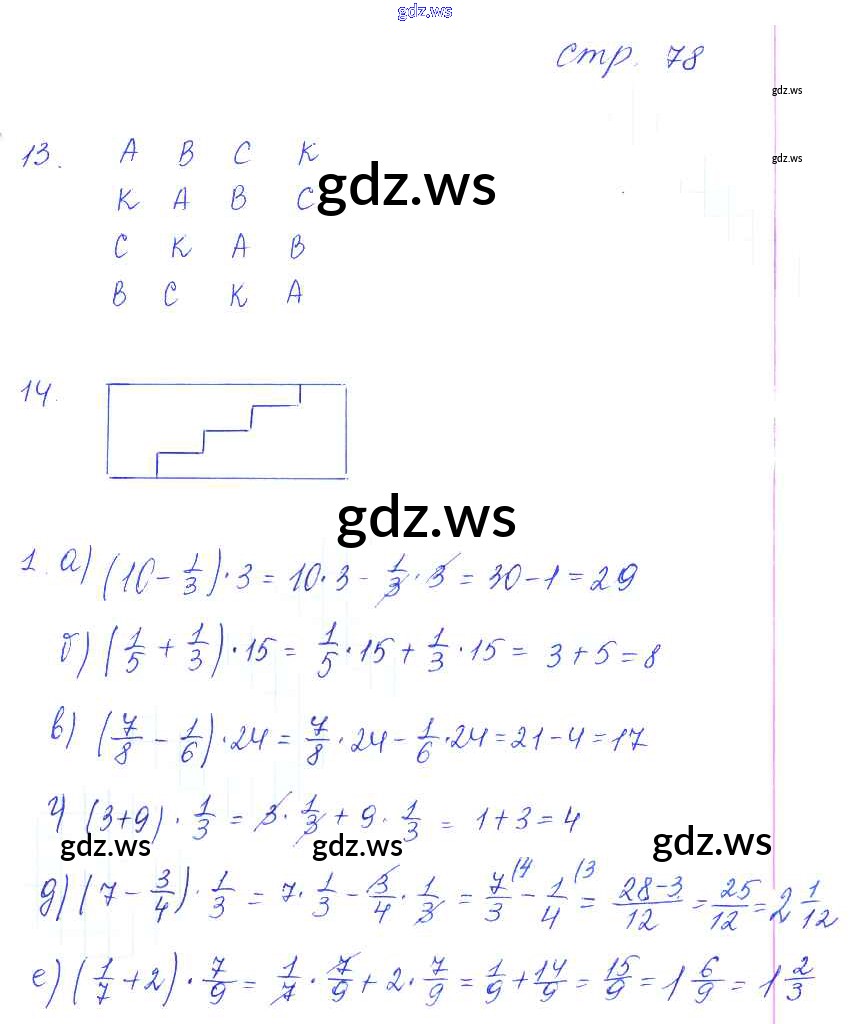 gdz.ws
стр. 78
gdz.ws
13. А В С К
gdz.ws
gdz.ws
К А В С
С К А В
В С К А
14.
gdz.ws
1. а) (10 - 1/3) · 3 = 10 · 3 - 1/3 · 3 = 30 - 1 = 29
б) (1/5 + 1/3) · 15 = 1/5 · 15 + 1/3 · 15 = 3 + 5 = 8
в) (7/8 - 1/6) · 24 = 7/8 · 24 - 1/6 · 24 = 21 - 4 = 17
г) (3+9) · 1/3 = 3 · 1/3 + 9 · 1/3 = 1 + 3 = 4
gdz.ws gdz.ws gdz.ws
д) (7 - 3/4) · 1/3 = 7 · 1/3 - 3/4 · 1/3 = 7/3 (4 - 1/4 (3 = 28-3/12 = 25/12 = 2 1/12
е) (1/7 + 2) · 7/9 = 1/7 · 7/9 + 2 · 7/9 = 1/9 + 14/9 = 15/9 = 1 6/9 = 1 2/3